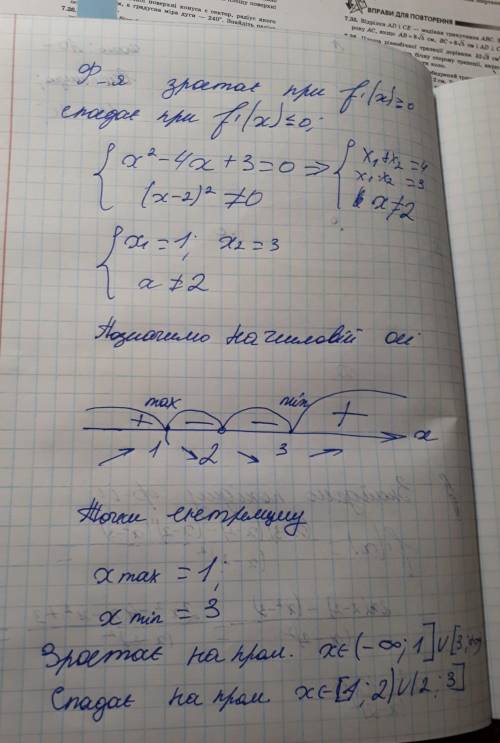 7.36.
ВПРАВИ ДЛЯ ПОВТОРЕННЯ
Ф-я зростає при f'(x)≥0
спадає при f'(x)≤0;
{ x² - 4x + 3 = 0 ⇒ { x₁+x₂ = 4
x₁·x₂ = 3
(x-2)² ≠ 0 x ≠ 2
{ x₁ = 1; x₂ = 3
x ≠ 2
Позначимо на числовій осі
max min
+ − − + x
↗ 1 ↘ 2 ↘ 3 ↗
Точки екстремуму
x max = 1;
x min = 3
Зростає на пром. x∈(-∞; 1]∪[3; +∞
Спадає на пром. x∈[1; 2)∪(2; 3]